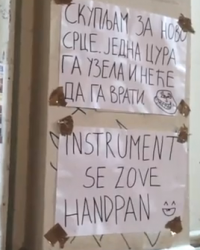 СКУПЉАМ ЗА НОВО
СРЦЕ. ЈЕДНА ЦУРА
ГА УЗЕЛА И НЕЋЕ
ДА ГА ВРАТИ
INSTRUMENT
SE ZOVE
HANDPAN